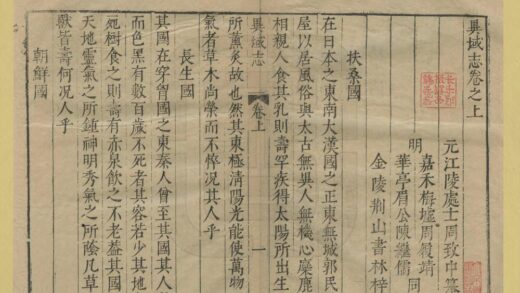 異域志卷之上
元江陵處士周致中纂
明
嘉禾梅墟周履靖
華亭眉公陳繼儒
同
金陵荊山書林梓
扶桑國
在日本之東南大漢國之正東無城郭民
屋以居風俗與太古無異人無機心麋鹿
相親人食其乳則壽罕疾得太陽所出生
異域志 卷上 一
所薰炙故也然其東極清陽光能使萬物
氣者草木尚榮而不悴況其人乎
長生國
其國在穿國之東秦人曾至其國其人
而色黑有數百歲不死者其容若少其地
宛樹食之則壽有赤泉飲之不老蓋其國
天地靈氣之所鍾神明秀氣之所蔭凡草
獸皆壽何況人乎
朝鮮國